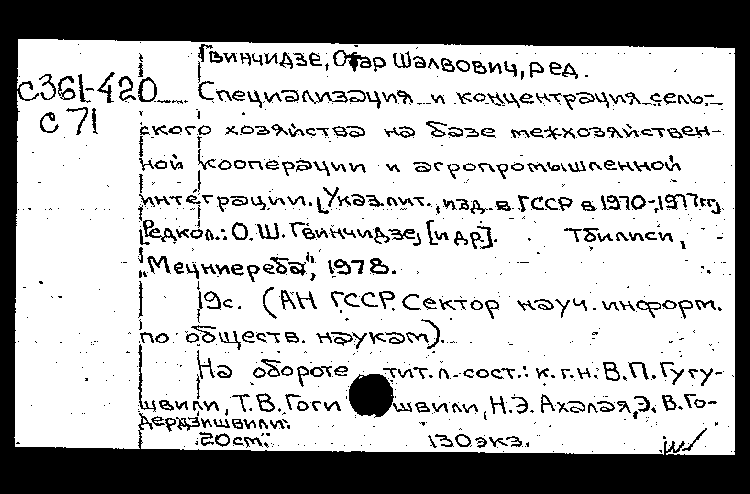 Гвинчидзе, Отар Шалвович, ред.
С361-420 Специализация и концентрация сель-
С71
ского хозяйства на базе межхозяйствен-
ной кооперации и агропромышленной
интеграции. [Указ. лит., изд. в ГССР в 1970-1977 гг.
Редкол.: О.Ш. Гвинчидзе, [и др]. Тбилиси,
"Мецниереба", 1978.
19с. (АН ГССР. Сектор науч. информ.
по обществ. наукам).
На обороте тит. л. сост.: к.г.н. В.П. Гугу-
швили, Т.В. Гоги швили, Н.Э. Ахалая, Э. В. Го-
дердзишвили.
20см. 130экз.